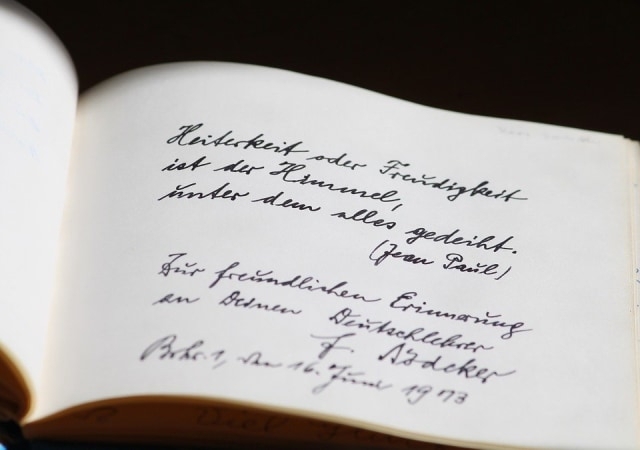 Heiterkeit oder Freudigkeit
ist der Himmel,
unter dem alles gedeiht.
(Jean Paul)
Zur freundlichen Erinnerung
an Deinen Deutschlehrer
F. Bödeker
1, den 16. Juni 1973